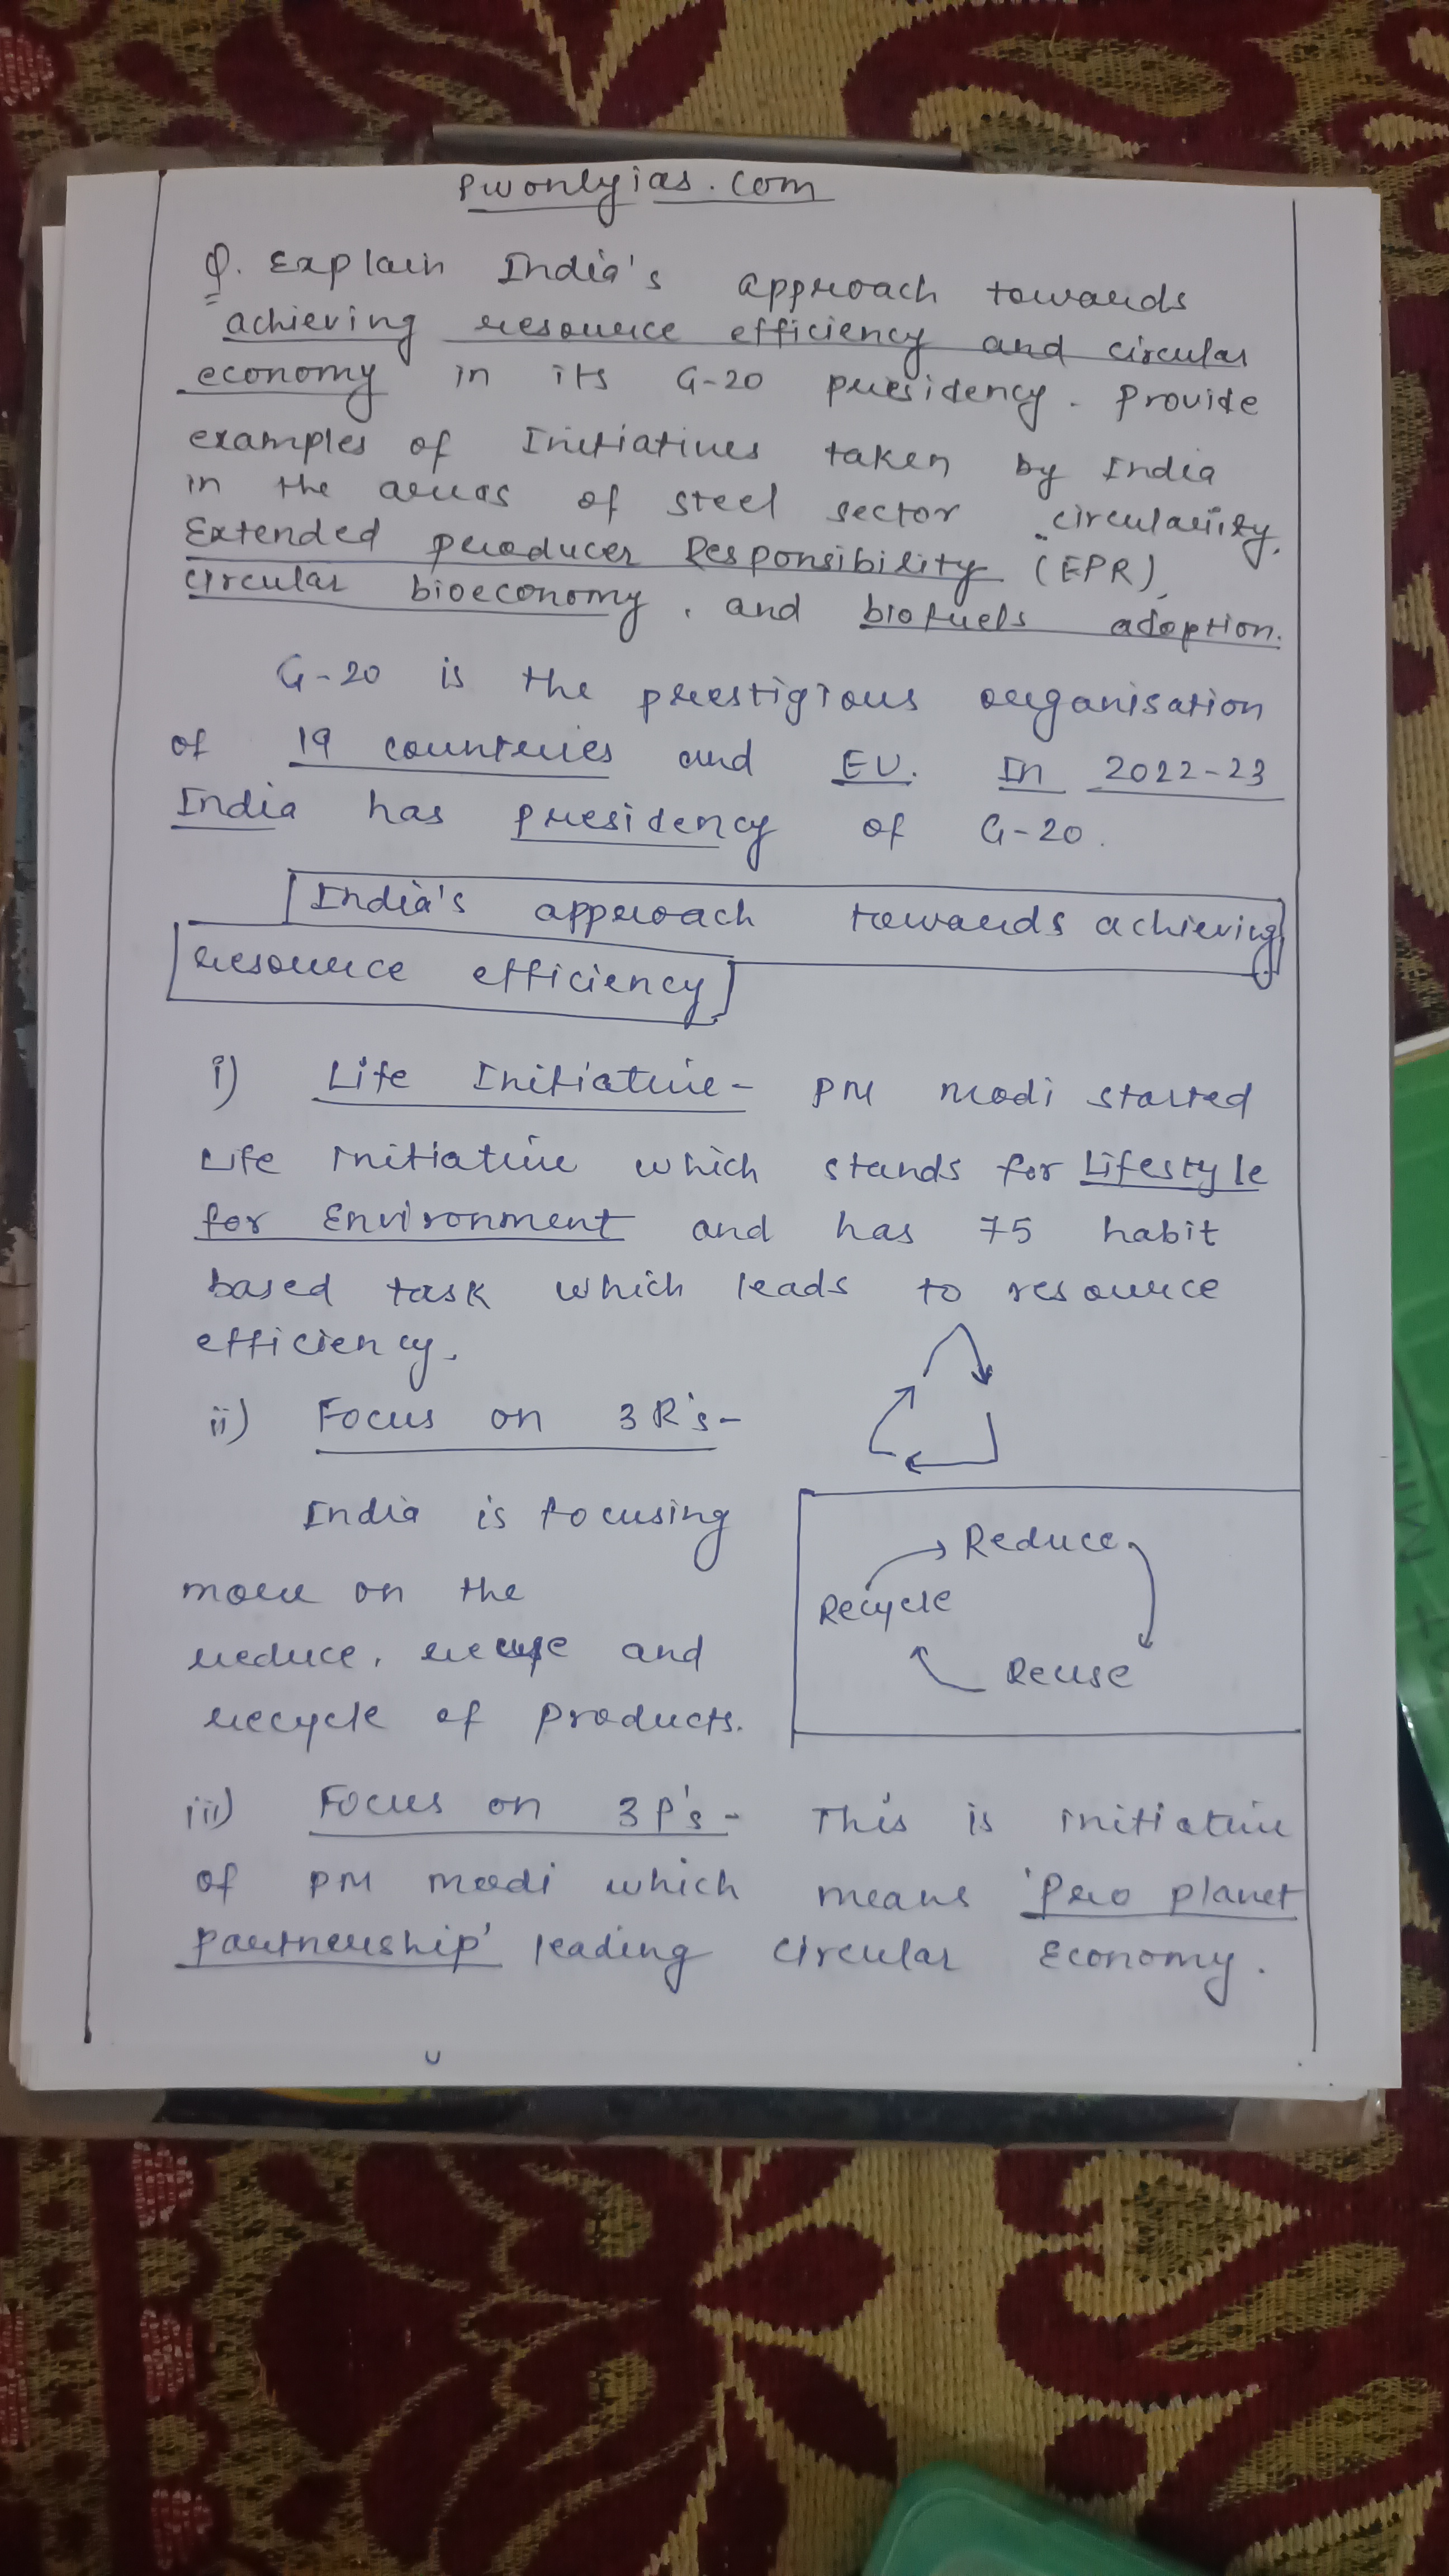 pwonlyias.com
Q. Explain India's approach towards
achieving resource efficiency and circular
economy in its G-20 presidency. Provide
examples of Initiatives taken by India
in the areas of steel sector circularity,
Extended producer Responsibility (EPR),
circular bioeconomy, and biofuels adoption.
G-20 is the prestigious organisation
of 19 countries and EU. In 2022-23
India has presidency of G-20.
India's approach towards achieving
resource efficiency
i) Life Initiative - PM Modi started
Life initiative which stands for Lifestyle
for Environment and has 75 habit
based task which leads to resource
efficiency.
ii) Focus on 3R's-
India is focusing
more on the
reduce, reuse and
recycle of products.
Reduce
Recycle
Reuse
iii) Focus on 3P's - This is initiative
of PM modi which means 'Pro planet
partnership' leading circular Economy.